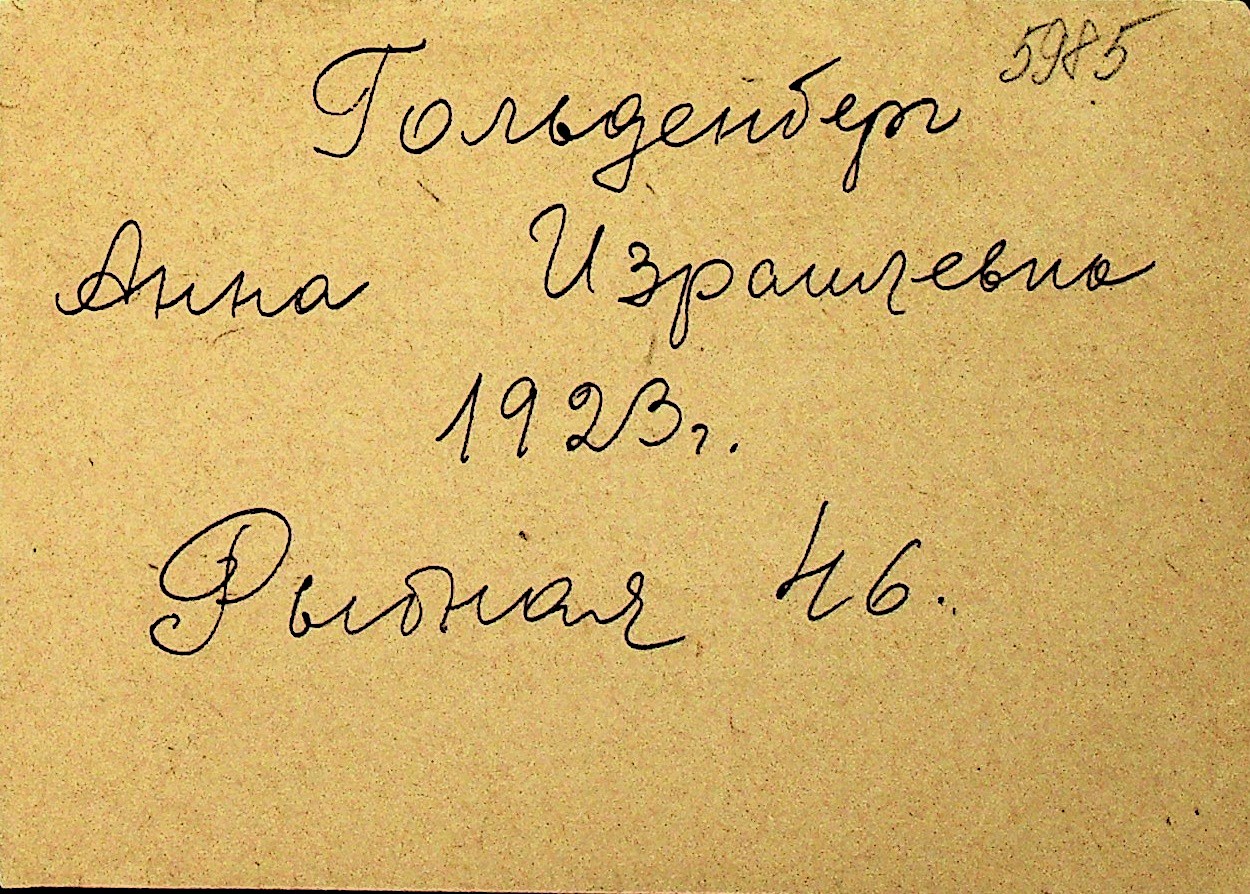 5985
Гольденберг
Анна Израилевна
1923г.
Рыбная 46.